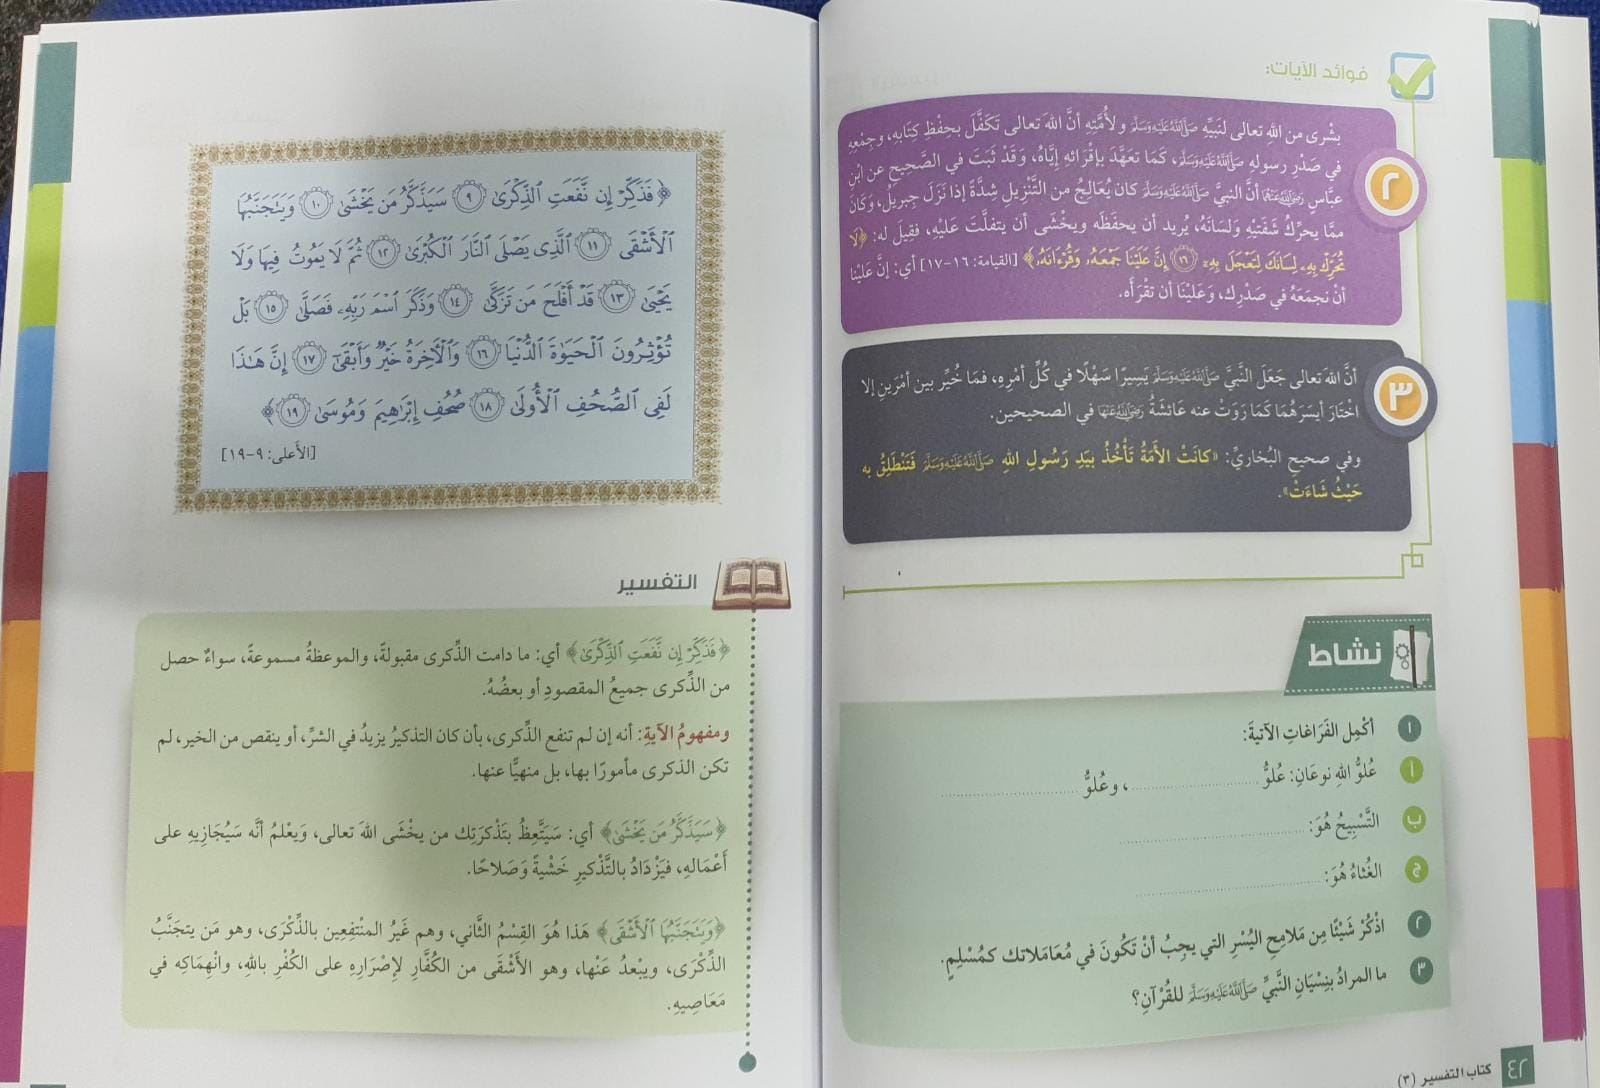 فوائد الآيات:
٢
بشْرى من اللهِ تعالى لنَبيِّهِ ﷺ ولأُمَّتِهِ أنَّ اللهَ تعالى تَكَفَّلَ بحِفْظِ كِتابِهِ، وجمْعِهِ
في صَدْرِ رسوله ﷺ، كَمَا تعهَّدَ بإقْرائهِ إيَّاهُ، وَقَدْ ثبَتَ في الصَّحيح عن ابْنِ
عبَّاسٍ رَضِيَ اللَّهُ عَنْهُمَا أنَّ النبي ﷺ كان يُعَالِجُ من التَّنْزِيلِ شِدَّةً إذا نَزَل جِبرِيلُ، وَكَانَ
ممَّا يحرِّكُ شَفَتَيْهِ وَلسَانَهُ، يُريد أن يحفَظَه ويخْشَى أن يتفلَّتَ عليْهِ، فقِيلَ له: ﴿لَا
تُحَرِّكْ بِهِۦ لِسَانَكَ لِتَعْجَلَ بِهِۦٓ ١٦ إِنَّ عَلَيْنَا جَمْعَهُۥ وَقُرْءَانَهُۥ﴾ [القيامة: ١٦-١٧] أي: إنَّ عَليْنا
أنْ نجمَعَهُ في صَدْرِك، وَعَليْنا أن تقرَأَه.
٣
أنَّ اللهَ تعالى جَعَلَ النَّبيَّ ﷺ يَسِيرًا سَهْلًا في كُلِّ أمْرِهِ، فمَا خُيِّر بين أمْرَينِ إلا
اخْتَارَ أيسَرَهُمَا كَمَا رَوَتْ عنه عَائشَةُ رَضِيَ اللَّهُ عَنْهَا في الصحيحين.
وفي صحيح البُخاريِّ: «كانَتْ الأمَةُ تَأْخُذُ بيَدِ رَسُولِ اللهِ ﷺ فَتَنْطَلِقُ به
حَيْثُ شَاءَتْ».
نشاط
١ أكْمِل الفَرَاغاتِ الآتيةَ:
أ عُلوُّ اللهِ نوعَانِ: عُلوُّ ........................ ، وعُلوُّ ........................
ب التَّسْبِيحُ هُوَ: ........................
ج الغُثاءُ هُوَ: ........................
٢ اذْكُرْ شَيْئًا مِن مَلامِحِ اليُسْرِ التي يجِبُ أنْ تَكُونَ في مُعَامَلاتك كمُسْلِمٍ.
٣ ما المرادُ بنِسْيَانِ النَّبيِّ ﷺ للقُرْآنِ؟
٤٢ كتاب التفسير (٣)
﴿ فَذَكِّرْ إِن نَّفَعَتِ ٱلذِّكْرَىٰ ٩ سَيَذَّكَّرُ مَن يَخْشَىٰ ١٠ وَيَتَجَنَّبُهَا
ٱلْأَشْقَى ١١ ٱلَّذِى يَصْلَى ٱلنَّارَ ٱلْكُبْرَىٰ ١٢ ثُمَّ لَا يَمُوتُ فِيهَا وَلَا
يَحْيَىٰ ١٣ قَدْ أَفْلَحَ مَن تَزَكَّىٰ ١٤ وَذَكَرَ ٱسْمَ رَبِّهِۦ فَصَلَّىٰ ١٥ بَلْ
تُؤْثِرُونَ ٱلْحَيَوٰةَ ٱلدُّنْيَا ١٦ وَٱلْأَخِرَةُ خَيْرٌ وَأَبْقَىٰٓ ١٧ إِنَّ هَـٰذَا
لَفِى ٱلصُّحُفِ ٱلْأُولَىٰ ١٨ صُحُفِ إِبْرَٰهِيمَ وَمُوسَىٰ ١٩ ﴾
[الأعلى: ٩-١٩]
التفسير
﴿فَذَكِّرْ إِن نَّفَعَتِ ٱلذِّكْرَىٰ﴾ أي: ما دامت الذِّكرى مقبولةً، والموعظةُ مسموعةً، سواءٌ حصل
من الذِّكرى جميعُ المقصودِ أو بعضُهُ.
ومفهومُ الآيةِ: أنه إن لم تنفع الذِّكرى، بأن كان التذكيرُ يزيدُ في الشرِّ، أو ينقص من الخير، لم
تكن الذكرى مأمورًا بها، بل منهيًّا عنها.
﴿سَيَذَّكَّرُ مَن يَخْشَىٰ﴾ أي: سَيَتَّعِظُ بتَذْكرَتِك من يخْشَى اللهَ تعالى، وَيعْلمُ أنَّه سَيُجَازِيهِ على
أعْمَالهِ، فيَزْدَادُ بالتَّذْكيرِ خَشْيةً وَصَلاحًا.
﴿وَيَتَجَنَّبُهَا ٱلْأَشْقَى﴾ هَذا هُوَ القِسْمُ الثَّاني، وهم غَيرُ المنْتفِعِين بالذِّكْرَى، وهو مَن يتجَنَّبُ
الذِّكْرَى، ويبْعدُ عَنْها، وهو الأشْقَى من الكُفَّارِ لإصْرَارِهِ على الكُفْرِ باللهِ، وانْهِمَاكِه في
مَعَاصِيهِ.